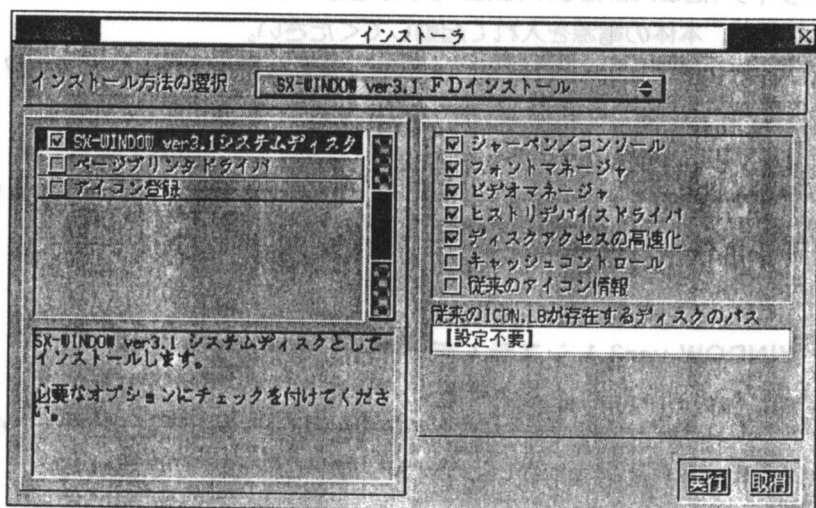 本体の電源を入れてください。
インストーラ
インストール方法の選択
SX-WINDOW ver3.1 FDインストール
SX-WINDOW ver3.1システムディスク
ページプリンタドライバ
アイコン登録
SX-WINDOW ver3.1 システムディスクとして
インストールします。
必要なオプションにチェックを付けてくださ
い。
シャーペン/コンソール
フォントマネージャ
ビデオマネージャ
ヒストリデバイスドライバ
ディスクアクセスの高速化
キャッシュコントロール
従来のアイコン情報
従来のICON.LBが存在するディスクのパス
【設定不要】
実行
取消